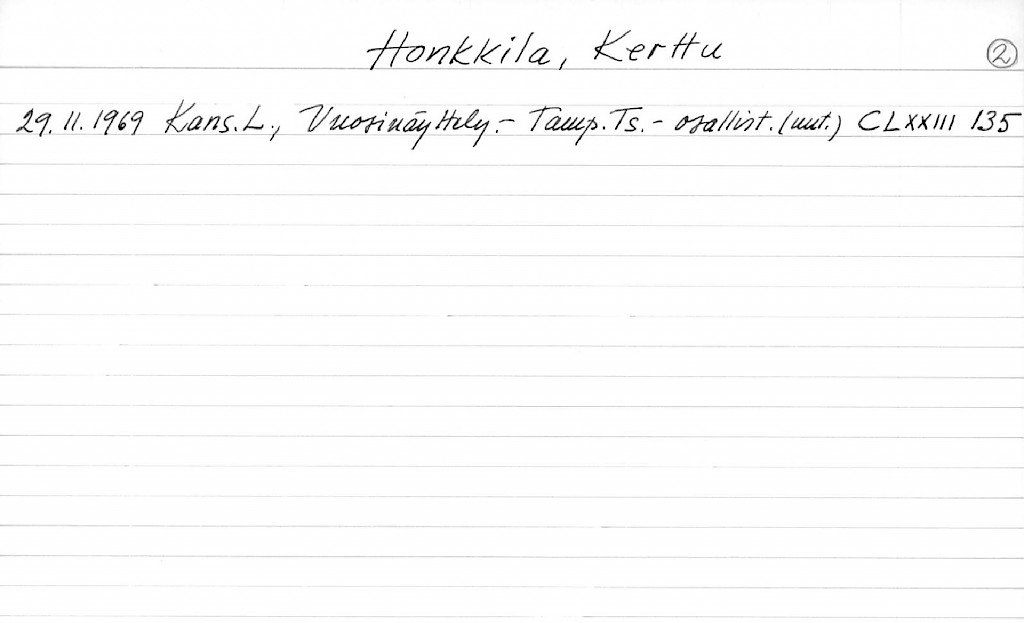 Honkkila, Kerttu ②
29.11.1969 Kans.L., Vuosinäyttely.- Tamp.Ts.- osallist.(uut.) CLXXIII 135